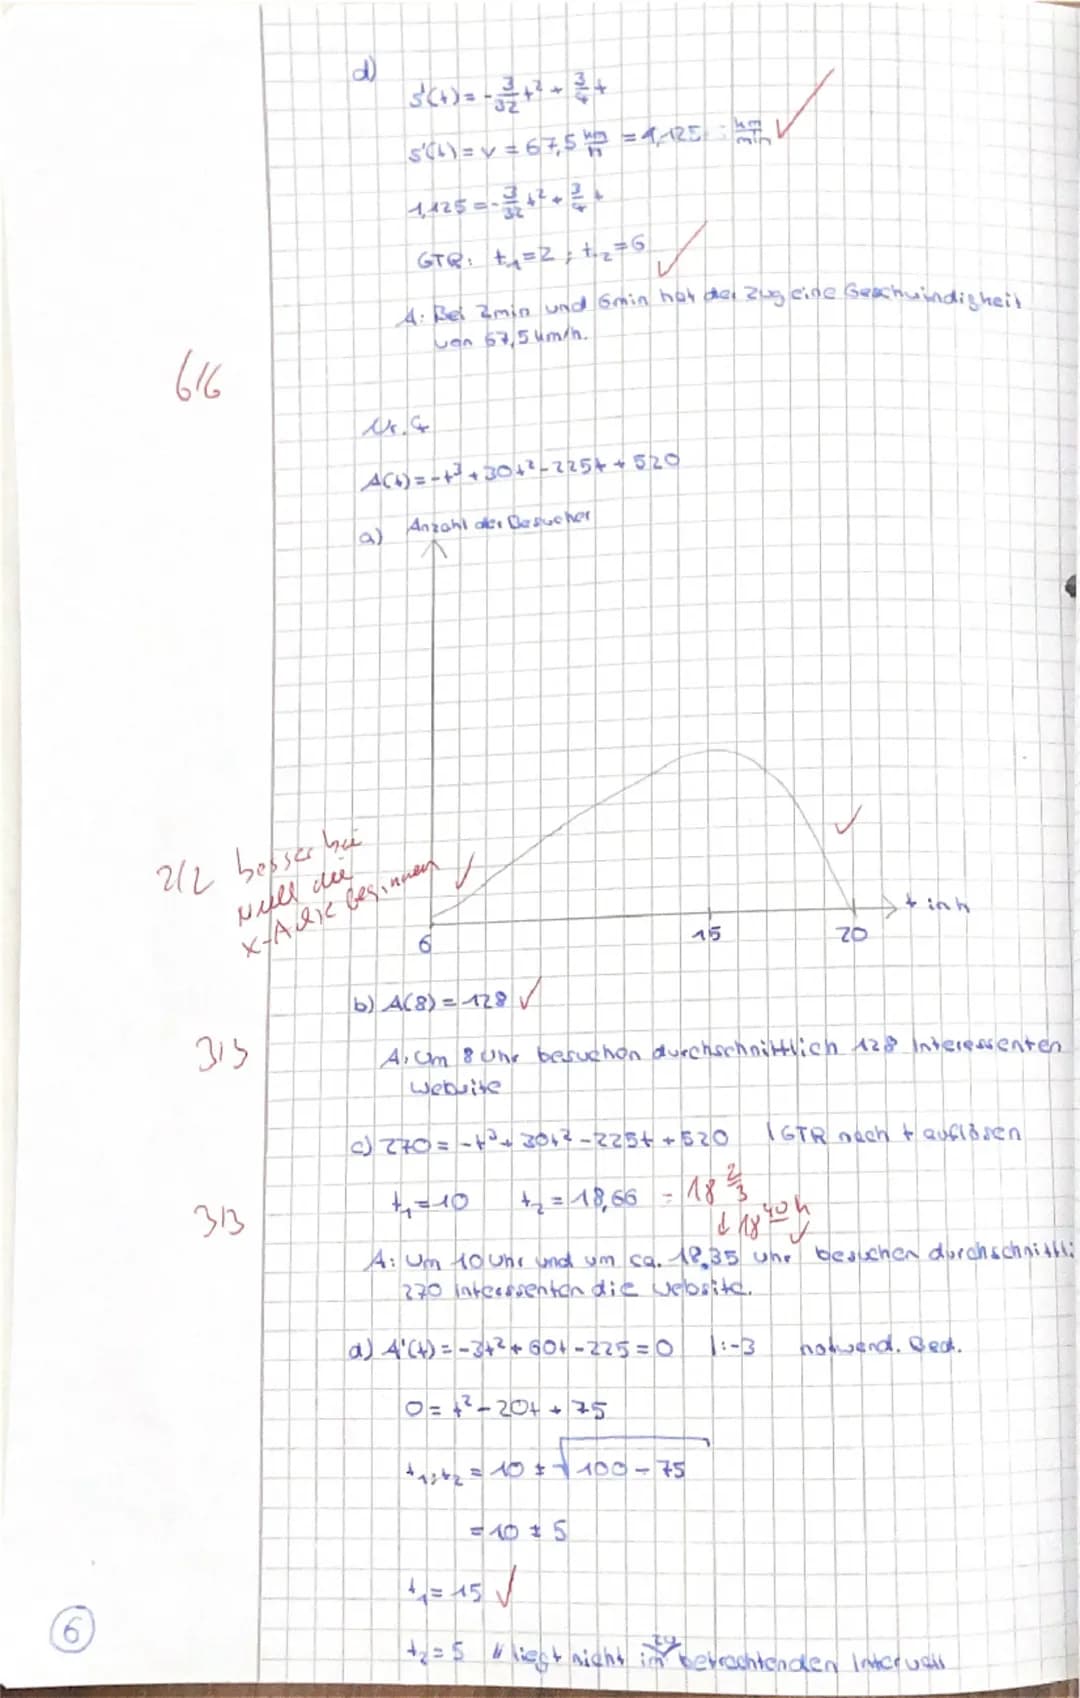 d)
s'(t) = -3/32 t² + 3/4 t
s'(t) = v = 67,5 km/h = 1,125 km/min ✓
1,125 = -3/32 t² + 3/4 t
GTR: t₁ = 2 ; t₂ = 6 ✓
A: Bei 2min und 6min hat der Zug eine Geschwindigkeit
von 67,5 km/h.
6/6
Nr. 4
A(t) = -t³ + 30t² - 225t + 520
a) Anzahl der Besucher
2/2 besser bei
Null die
x-Achse beginnen
✓
✓
t in h
6
15
20
b) A(8) = 128 ✓
3/3
A: Um 8 Uhr besuchen durchschnittlich 128 Interessenten
Website
c) 270 = -t³ + 30t² - 225t + 520 | GTR nach t auflösen
t₁ = 10 t₂ = 18,66 = 18 2/3
↓ 18 40 h
3/3
✓
A: Um 10 Uhr und um ca. 18,35 Uhr besuchen durchschnittli
270 Interessenten die Website.
d) A'(t) = -3t² + 60t - 225 = 0 | :-3 notwend. Bed.
0 = t² - 20t + 75
t₁;t₂ = 10 ± √100 - 75
= 10 ± 5
t₁ = 15 ✓
t₂ = 5 // liegt nicht im zu betrachtenden Intervall
6